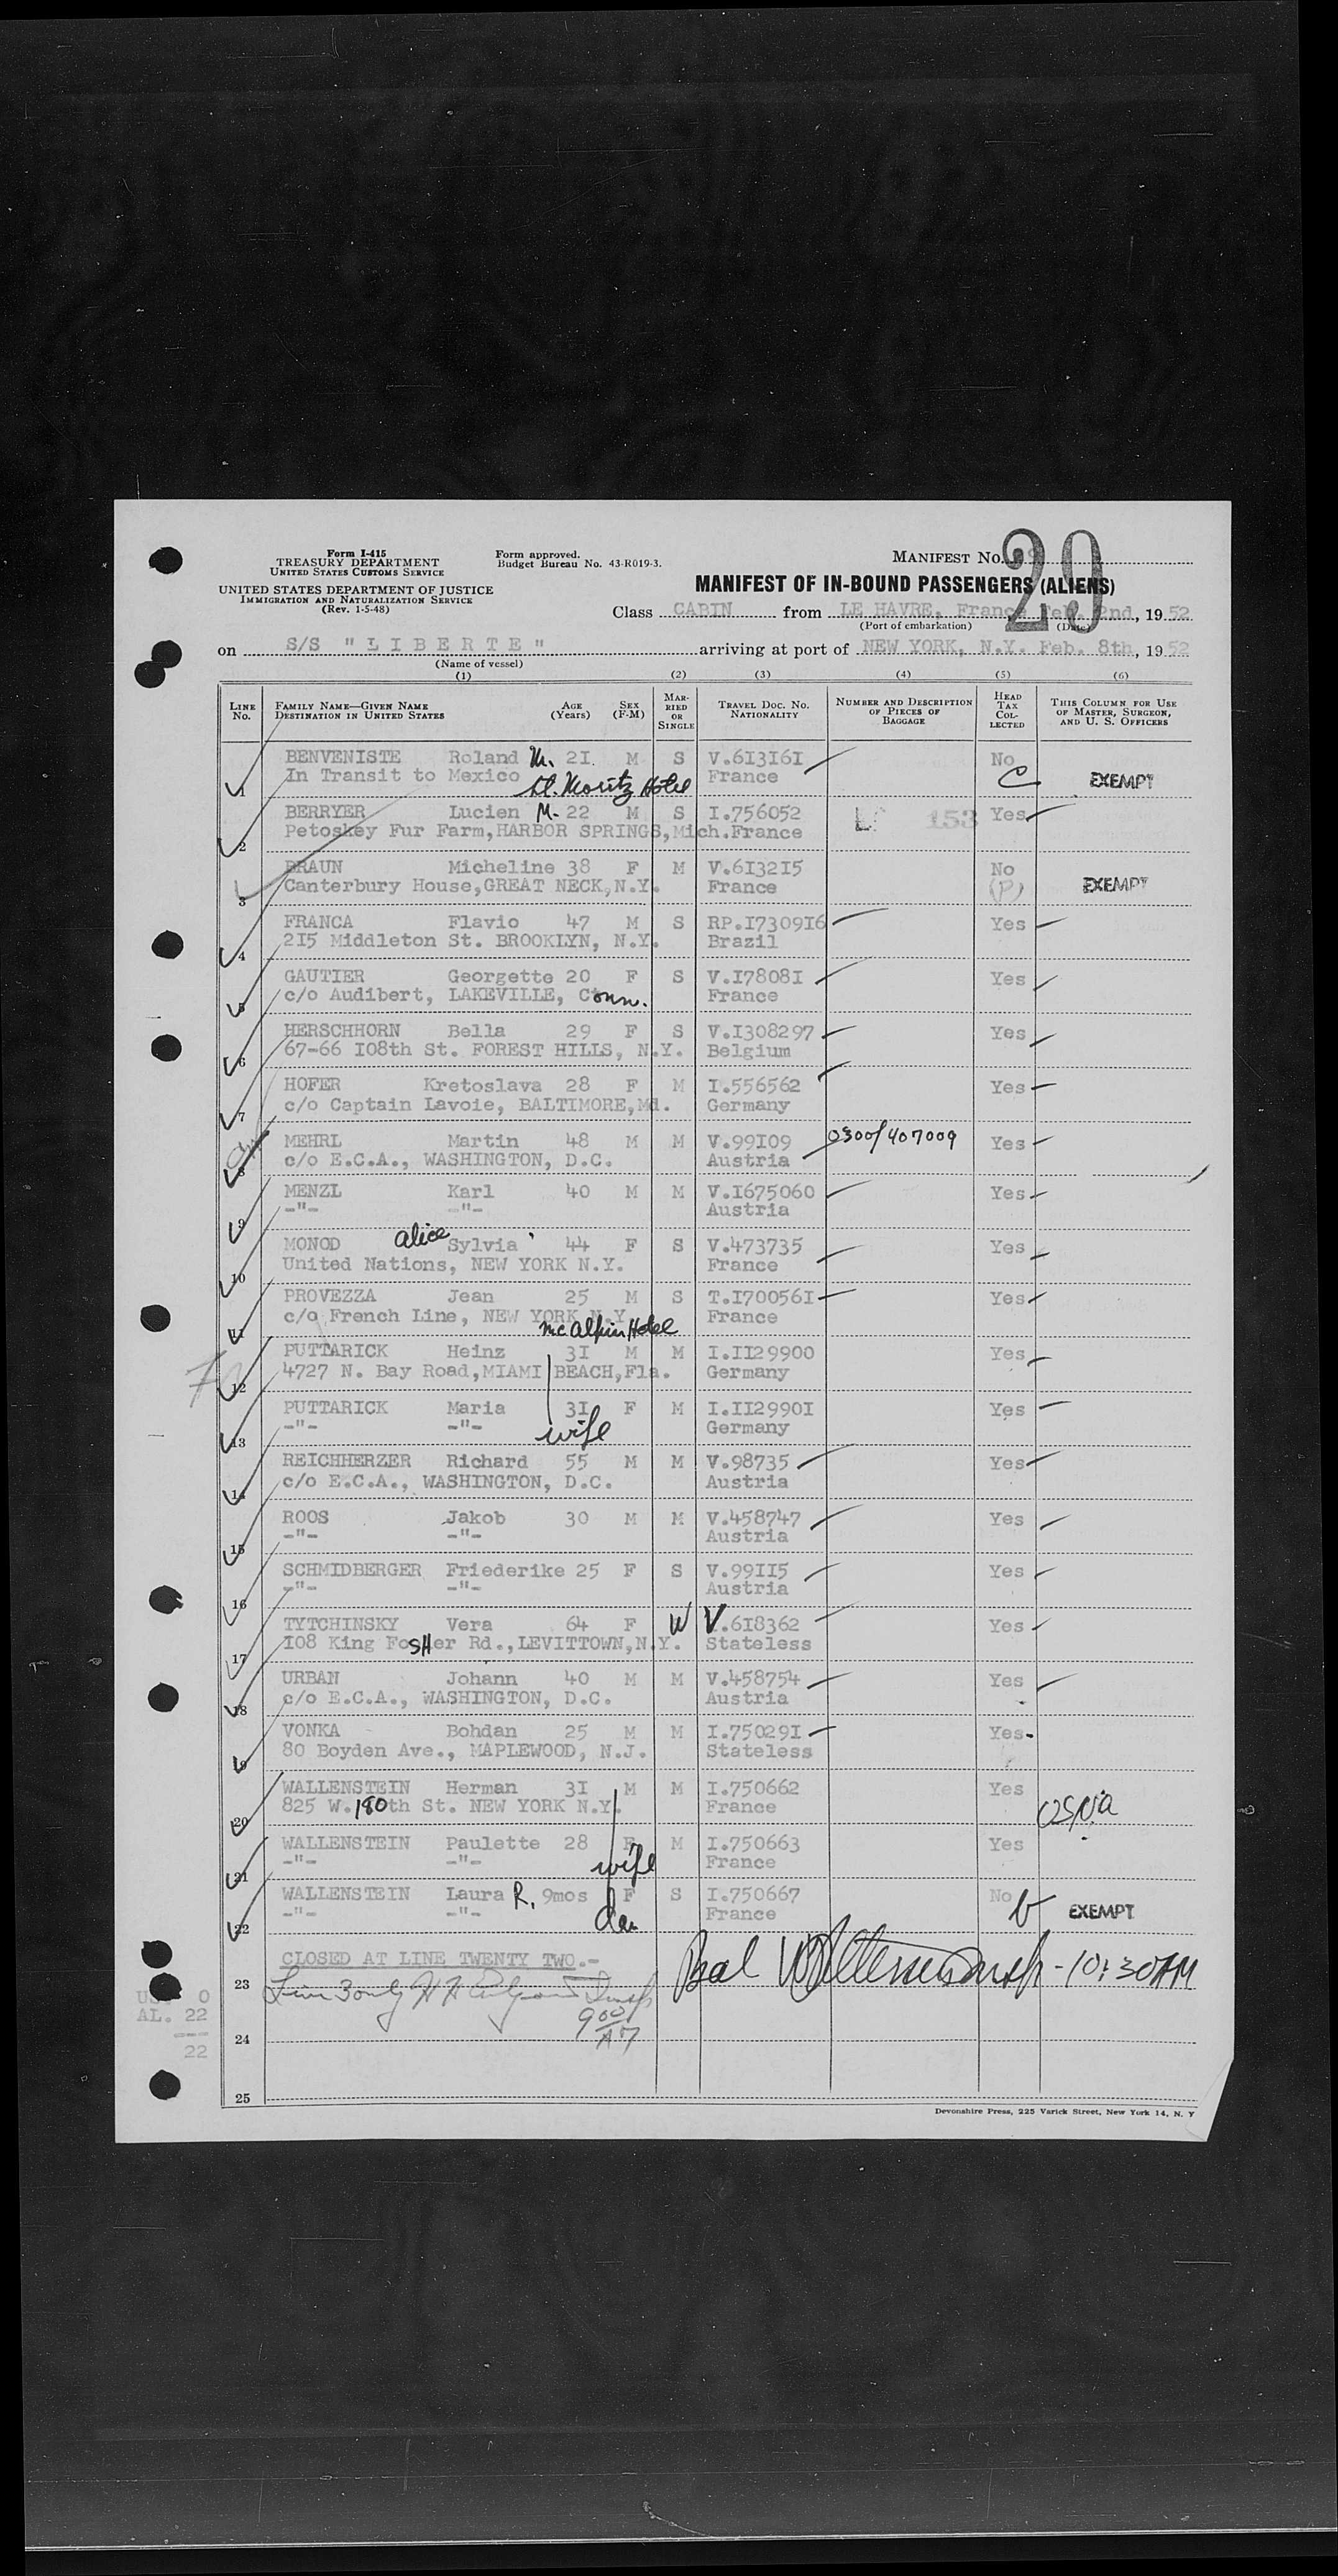 Form I-415
TREASURY DEPARTMENT
UNITED STATES CUSTOMS SERVICE
UNITED STATES DEPARTMENT OF JUSTICE
IMMIGRATION AND NATURALIZATION SERVICE
(Rev. 1-5-48)
Form approved.
Budget Bureau No. 43-R019-3.
MANIFEST No. 29
MANIFEST OF IN-BOUND PASSENGERS (ALIENS)
Class CABIN from LE HAVRE, France Feb. 2nd, 1952
(Port of embarkation) (Date)
on S/S "LIBERTE" arriving at port of NEW YORK, N.Y. Feb. 8th, 1952
(Name of vessel)
(1) (2) (3) (4) (5) (6)
LINE No. FAMILY NAME—GIVEN NAME DESTINATION IN UNITED STATES AGE (Years) SEX (F-M) MARRIED OR SINGLE TRAVEL DOC. NO. NATIONALITY NUMBER AND DESCRIPTION OF PIECES OF BAGGAGE HEAD TAX COLLECTED THIS COLUMN FOR USE OF MASTER, SURGEON, AND U. S. OFFICERS
BENVENISTE Roland M. 21. M S V.613161 No
1 In Transit to Mexico St. Moritz Hotel France C EXEMPT
BERRYER Lucien M. 22 M S I.756052 153 Yes
2 Petoskey Fur Farm,HARBOR SPRINGS,Mich.France
BRAUN Micheline 38 F M V.613215 No
3 Canterbury House,GREAT NECK,N.Y. France (P) EXEMPT
FRANCA Flavio 47 M S RP.1730916 Yes
4 215 Middleton St. BROOKLYN, N.Y. Brazil
GAUTIER Georgette 20 F S V.178081 Yes
5 c/o Audibert, LAKEVILLE, Conn. France
HERSCHHORN Bella 29 F S V.1308297 Yes
6 67-66 108th St. FOREST HILLS, N.Y. Belgium
HOFER Kretoslava 28 F M I.556562 Yes
7 c/o Captain Lavoie, BALTIMORE,Md. Germany
MEHRL Martin 48 M M V.99109 0300/407009 Yes
8 c/o E.C.A., WASHINGTON, D.C. Austria
MENZL Karl 40 M M V.1675060 Yes
9 -"- -"- Austria
MONOD alice Sylvia 44 F S V.473735 Yes
10 United Nations, NEW YORK N.Y. France
PROVEZZA Jean 25 M S T.1700561 Yes
11 c/o French Line, NEW YORK N.Y. McAlpin Hotel France
PUTTARICK Heinz 31 M M I.1129900 Yes
12 4727 N. Bay Road,MIAMI BEACH,Fla. Germany
PUTTARICK Maria 31 F M I.1129901 Yes
13 -"- -"- wife Germany
REICHHERZER Richard 55 M M V.98735 Yes
14 c/o E.C.A., WASHINGTON, D.C. Austria
ROOS Jakob 30 M M V.458747 Yes
15 -"- -"- Austria
SCHMIDBERGER Friederike 25 F S V.99115 Yes
16 -"- -"- Austria
TYTCHINSKY Vera 64 F W V.618362 Yes
17 108 King FoSHer Rd.,LEVITTOWN,N.Y. Stateless
URBAN Johann 40 M M V.458754 Yes
18 c/o E.C.A., WASHINGTON, D.C. Austria
VONKA Bohdan 25 M M I.750291 Yes
19 80 Boyden Ave., MAPLEWOOD, N.J. Stateless
WALLENSTEIN Herman 31 M M I.750662 Yes
20 825 W.180th St. NEW YORK N.Y. France
WALLENSTEIN Paulette 28 F M I.750663 Yes
21 -"- -"- wife France
WALLENSTEIN Laura R. 9mos F S I.750667 No
22 -"- -"- dau France EXEMPT
CLOSED AT LINE TWENTY TWO.-
23 - 10:30 AM
Line 3 only
US. 0
AL. 22
---
22
900
24
25
Devonshire Press, 225 Varick Street, New York 14, N. Y